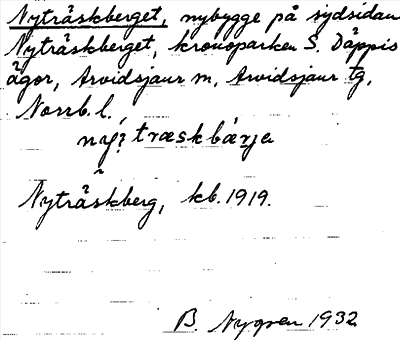 Nyträskberget, nybygge på sydsidan
Nyträskberget, kronoparken S. Däppis
ägor, Arvidsjaur m, Arvidsjaur tg,
Norrb. l.
Nyträskberg, kb. 1919.
B. Nygren 1932